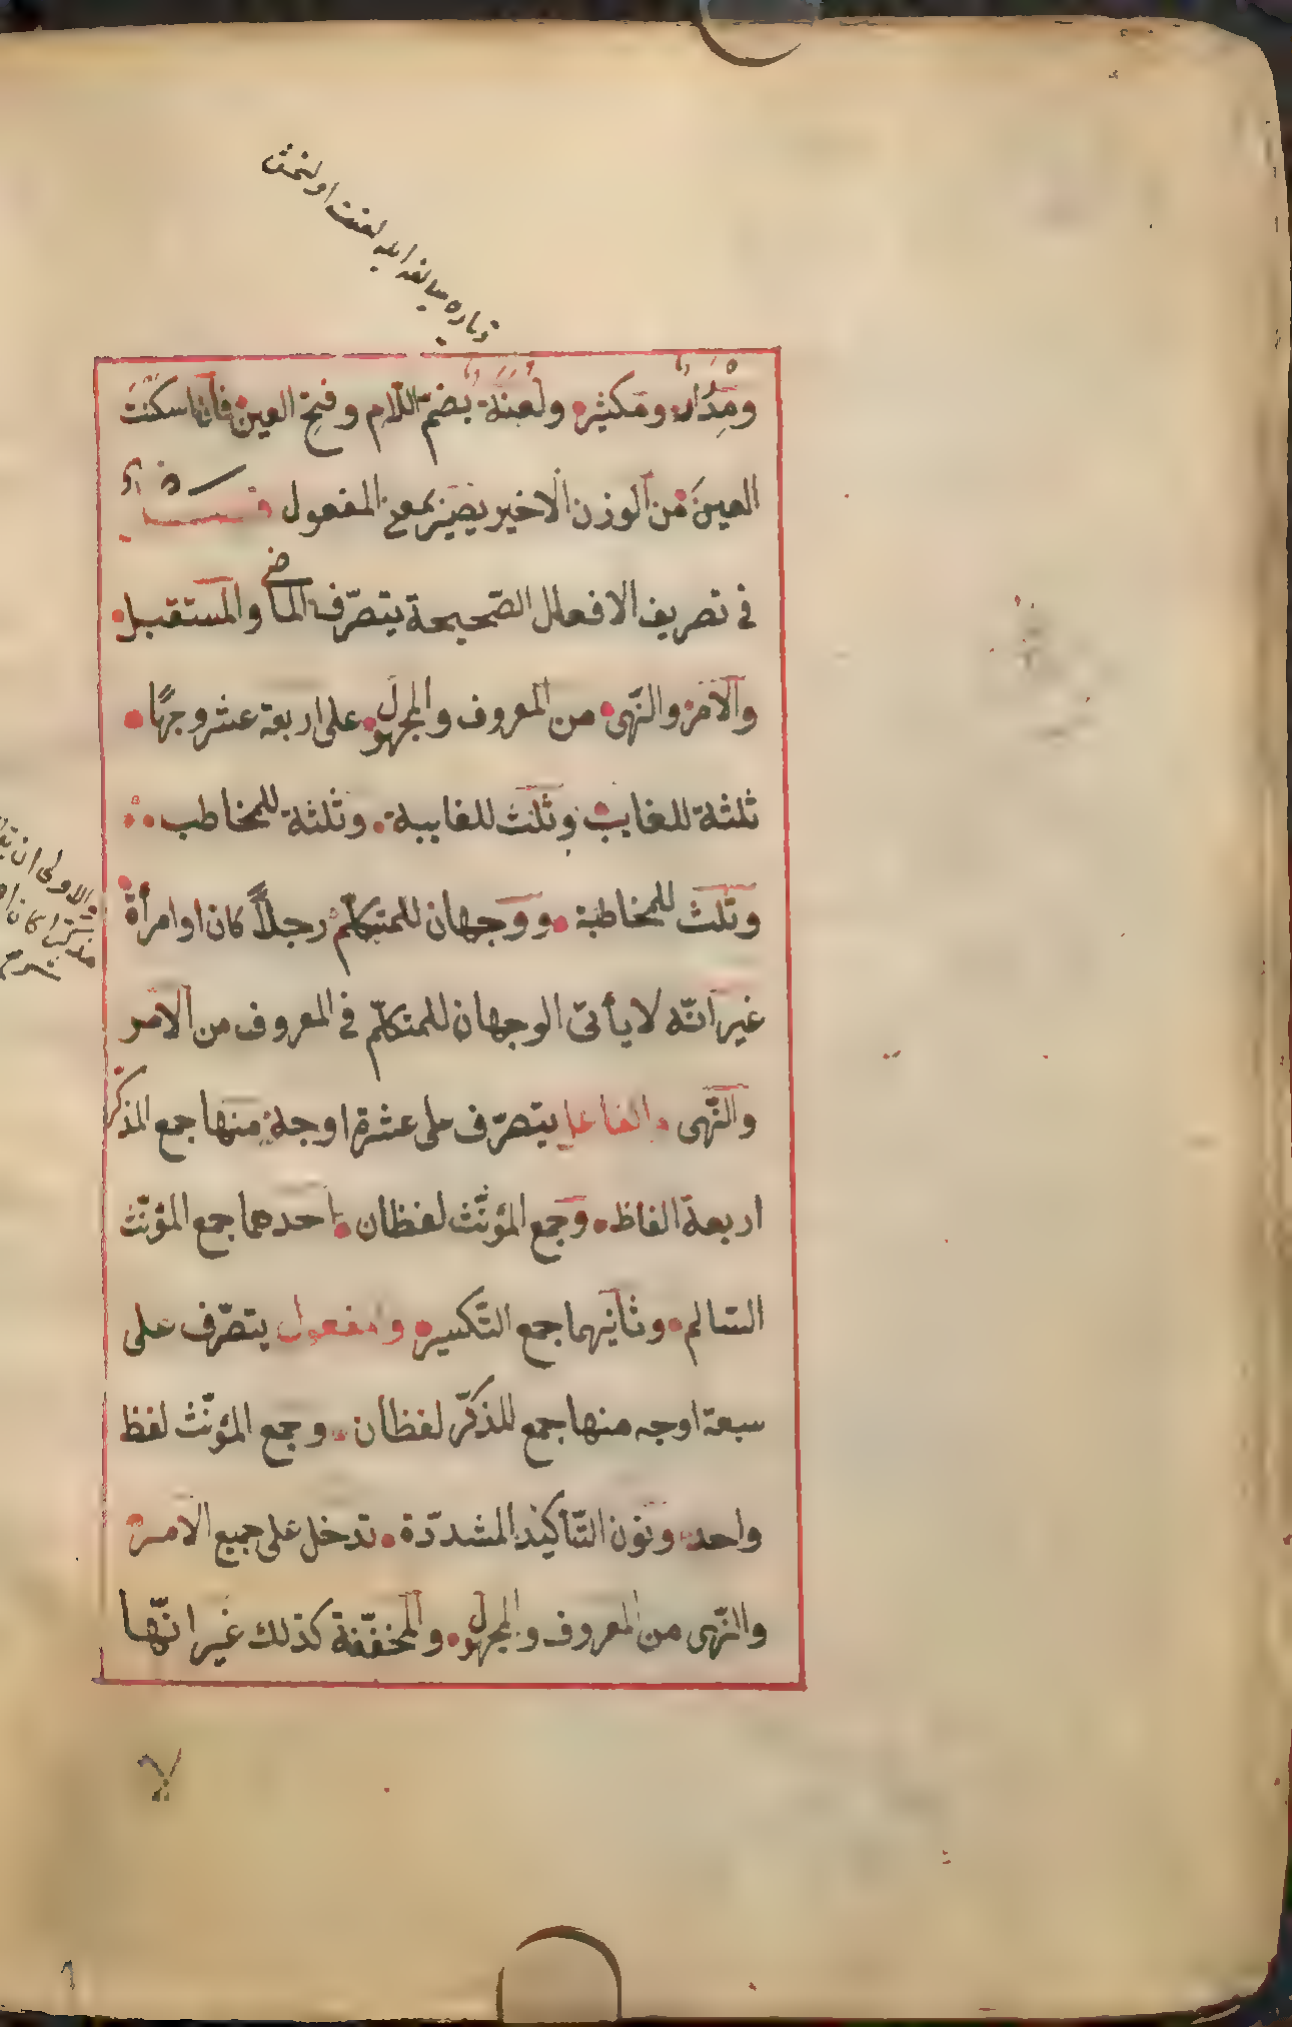 ومدرار ومكثير ولعنة بضم اللام وفتح العين فان اسكنت
العين من الوزن الاخير يصير بمعنى المفعول فصل
فى تصريف الافعال الصّحيحة يتصرّف الماضى والمستقبل
والامر والنّهى من المعروف والمجهول على اربعة عشر وجهًا
ثلثة للغايب وثلث للغايبة وثلثة للمخاطب
وثلث للمخاطبة ووجهان للمتكلّم رجلاً كان او امرأة
غير انّه لا يأتى الوجهان للمتكلّم فى المعروف من الامر
والنّهى والفاعل يتصرّف على عشرة اوجه منها جمع المذكّر
اربعة الفاظ وجمع المؤنّث لفظان احدهما جمع المؤنّث
السّالم وثانيهما جمع التّكسير والمفعول يتصرّف على
سبعة اوجه منها جمع للمذكّر لفظان وجمع المؤنّث لفظ
واحد ونون التّأكيد المشدّدة تدخل على جميع الامر
والنّهى من المعروف والمجهول والمخفّفة كذلك غير انّها
لا